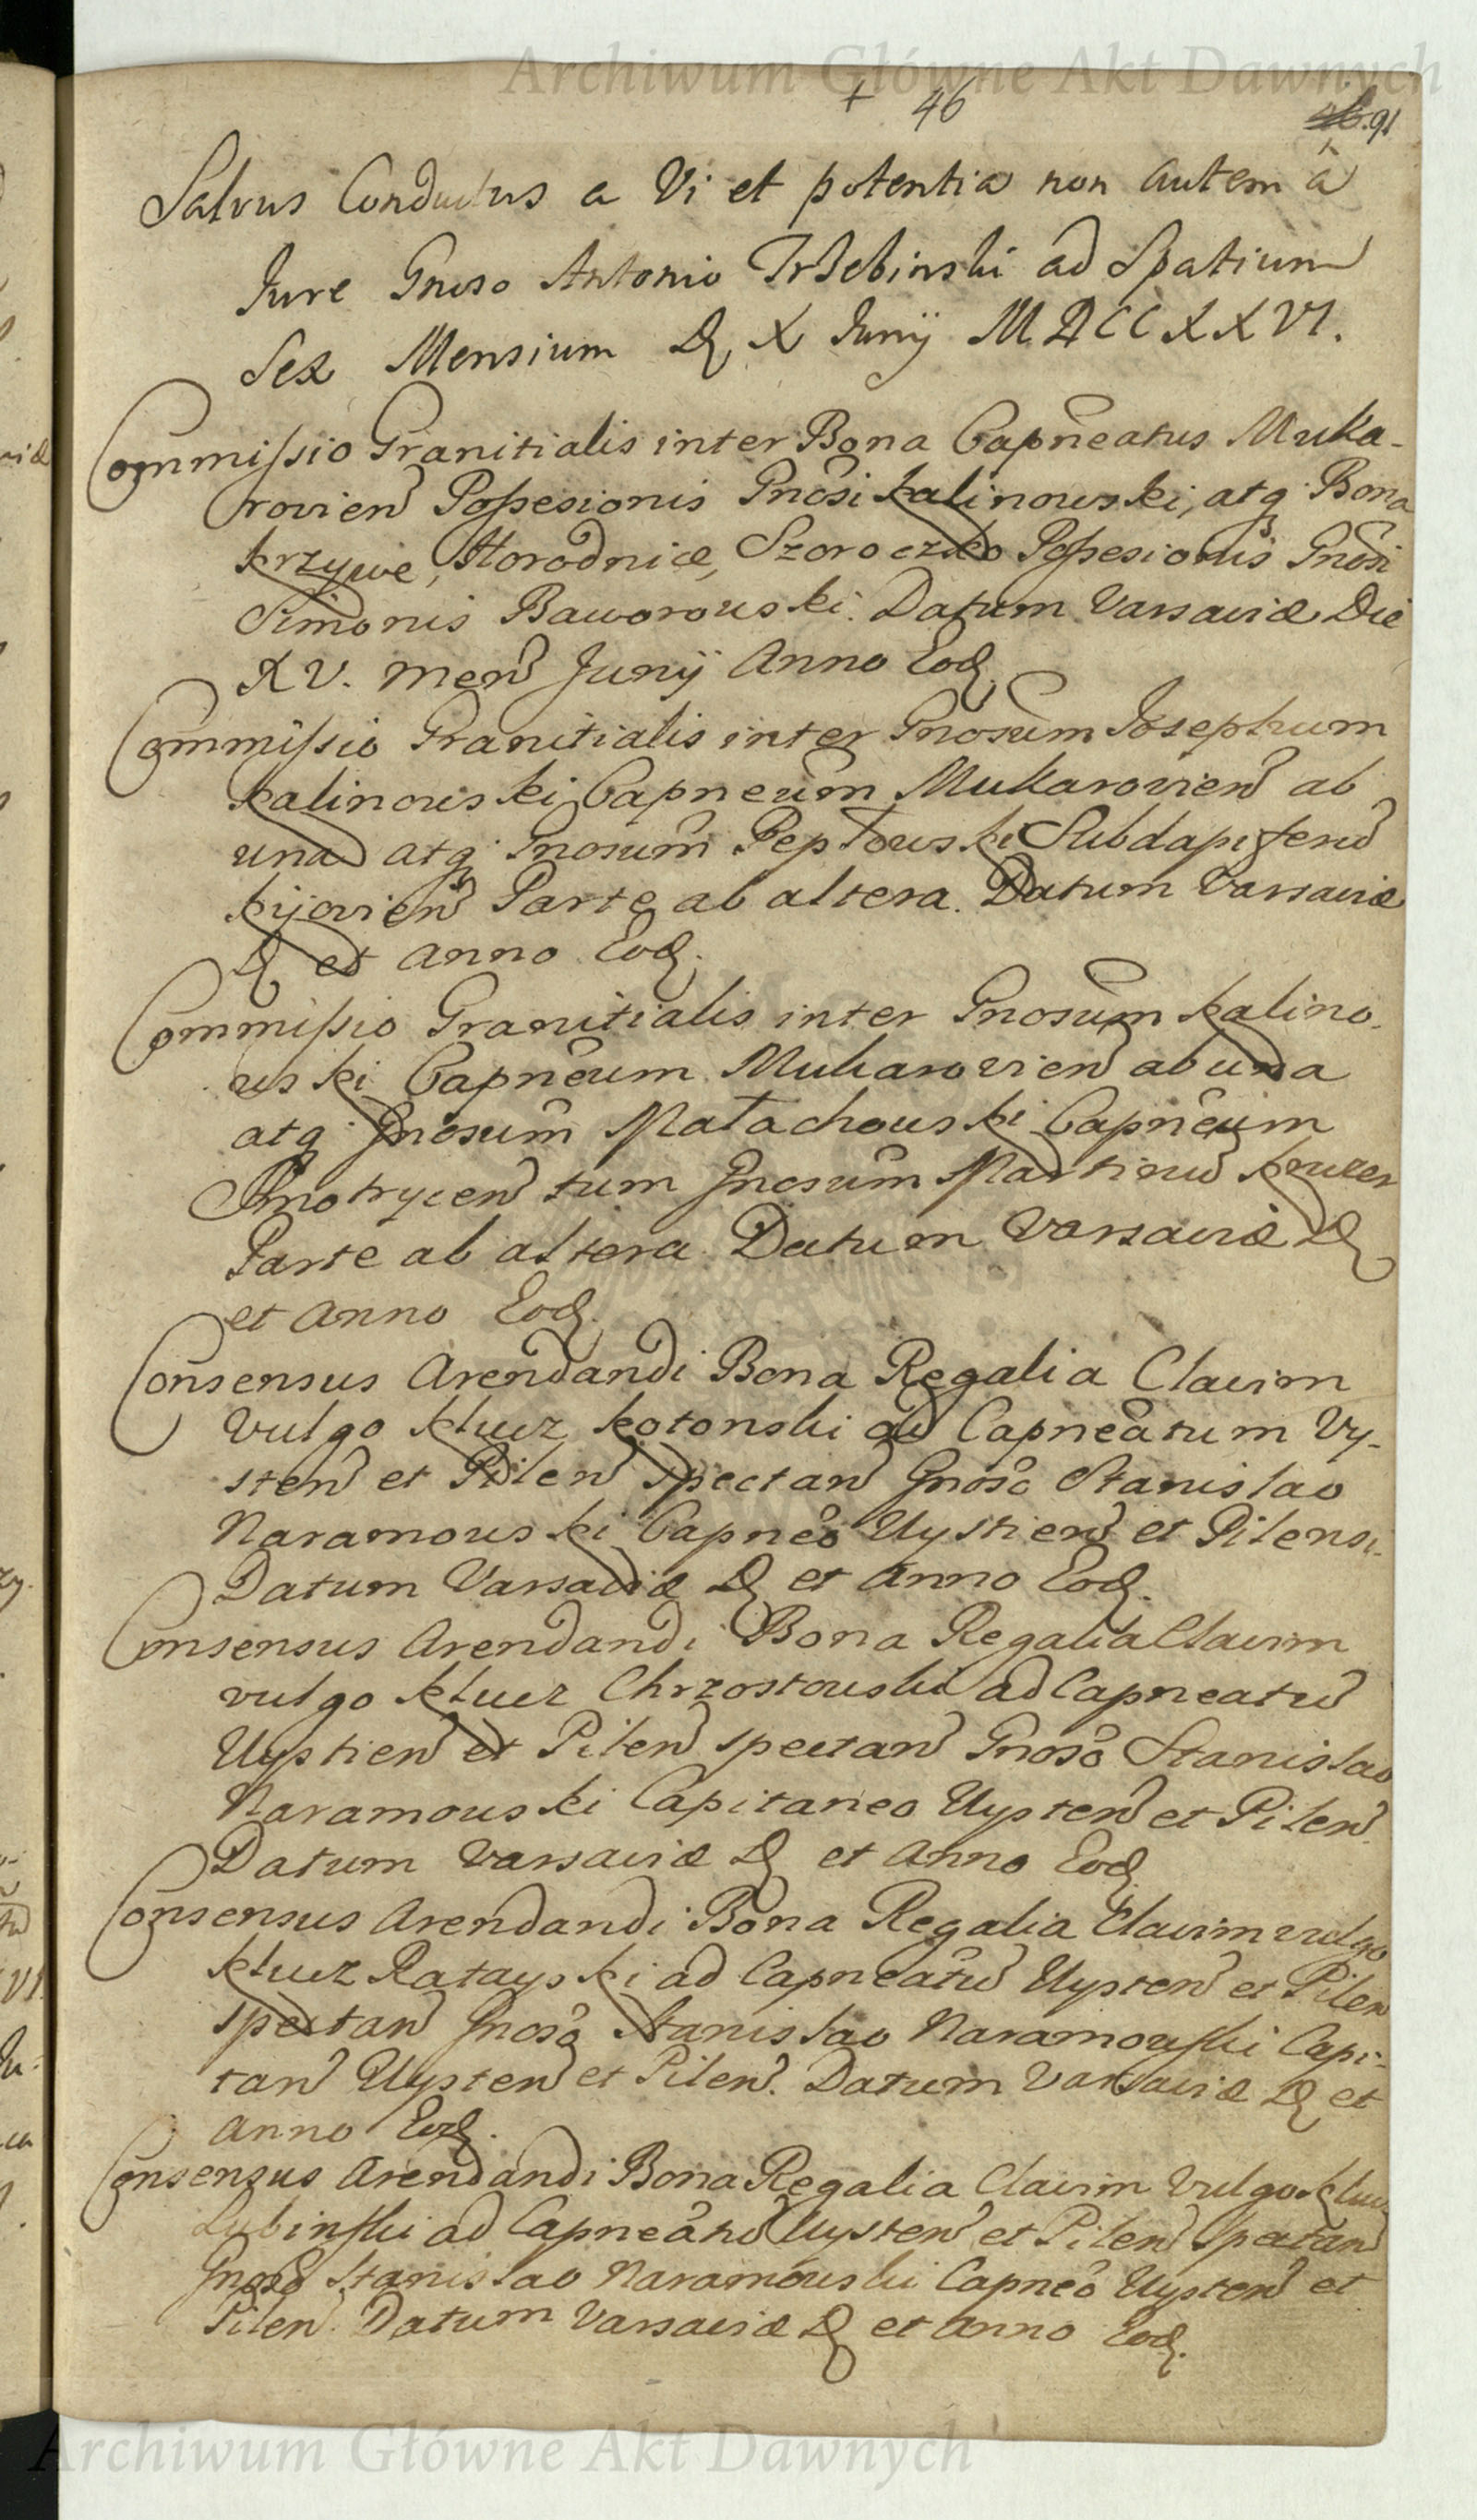 Archiwum Główne Akt Dawnych
+ 46
91
Salvus Conductus a Vi et potentia non autem â
Jure Gnoso Antonio Trzebinski ad Spatium
Sex Mensium D. X Junij MDCCXXVI.
Commissio Granitialis inter Bona Capneatus Muka-
rovien Possesionis Gnosi Kalinowski, atq Bona
Krzywe, Horodnicæ, Szoroczko Possesionis Gnosi
Simonis Baworowski. Datum Varsaviæ Die
XV. Men Junij Anno Eod.
Commissio Granitialis inter Gnosum Josephum
Kalinowski Capneum Mukarovien ab
una atq Gnosum Peptowski Subdapiferu
Kijovien Parte ab altera. Datum Varsaviæ
D. et Anno Eod.
Commissio Granitialis inter Gnosum Kalino-
wski Capneum Mukarovien ab una
atq Gnosum Małachowski Capneum
tum Gnosum Martinu
Parte ab altera Datum Varsaviæ D.
et Anno Eod.
Consensus Arendandi Bona Regalia Clavim
Vulgo Klucz Kotonski ad Capneatum Uy-
sten et Pilen spectan Gnoso Stanislao
Naramowski Capneo Uystien et Pilensi.
Datum Varsaviæ D. et Anno Eod.
Consensus Arendandi Bona Regalia Clavim
vulgo Klucz Chrzostowski ad Capneatu
Uystien et Pilen spectan Gnoso Stanislao
Naramowski Capitaneo Uysten et Pilen.
Datum Varsaviæ D. et Anno Eod.
Consensus Arendandi Bona Regalia Clavim vulgo
Klucz Ratayski ad Capneatu Uysten et Pilen
spectan Gnoso Stanislao Naramowski Capi-
tan Uysten et Pilen. Datum Varsaviæ D. et
Anno Eod.
Consensus Arendandi Bona Regalia Clavim Vulgo Klucz
Lubinski ad Capneatu Uysten et Pilen Spectan
Gnoso Stanislao Naramowski Capneo Uysten et
Pilen. Datum Varsaviæ D. et Anno Eod.
Archiwum Główne Akt Dawnych